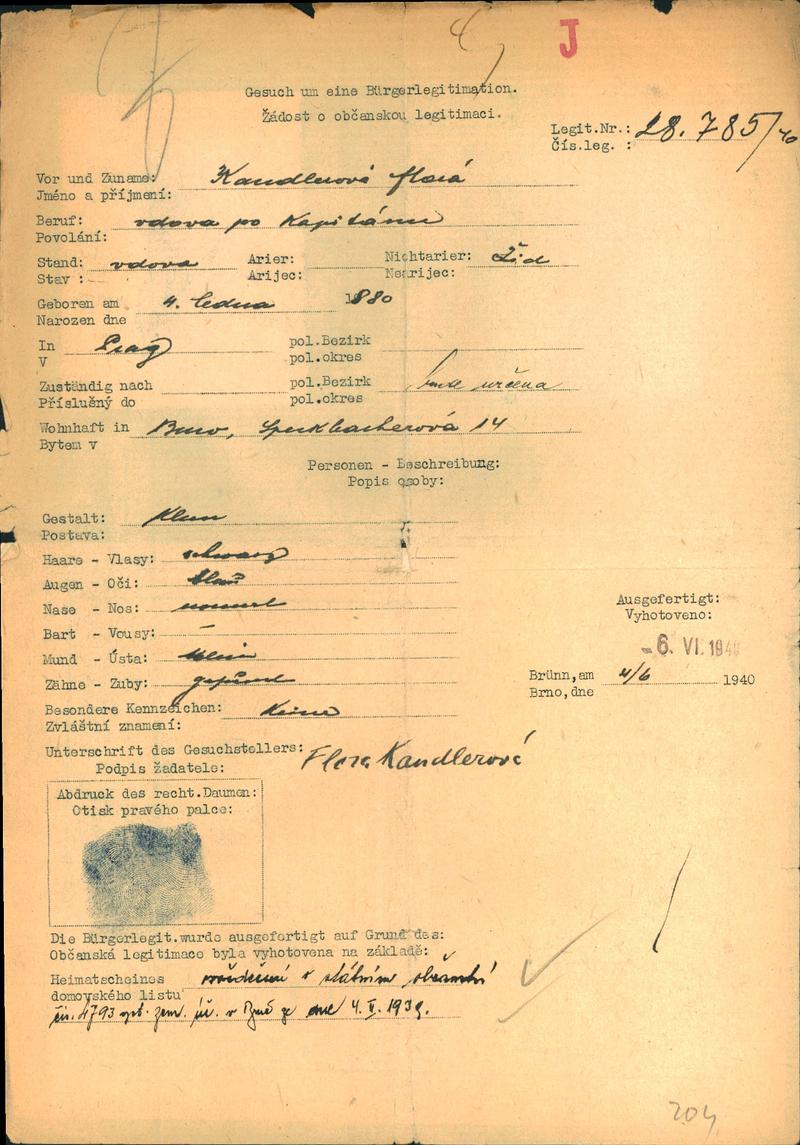 J
Gesuch um eine Bürgerlegitimation.
Žádost o občanskou legitimaci.
Legit.Nr.: 28.785/40
Čís.leg. :
Vor und Zuname: Kandlerová Flora
Jméno a příjmení:
Beruf: vdova po kapitánu
Povolání:
Stand: vdova Arier: Nichtarier: Žid
Stav : Arijec: Nearijec:
Geboren am 4. ledna 1880
Narozen dne
In Prag pol.Bezirk
V pol.okres
Zuständig nach pol.Bezirk bude určena
Příslušný do pol.okres
Wohnhaft in Brno, Speckbacherová 14
Bytem v
Personen - Beschreibung:
Popis osoby:
Gestalt: klein
Postava:
Haare - Vlasy: schwarz
Augen - Oči: blau
Nase - Nos: normal
Bart - Vousy: -
Mund - Ústa: klein
Zähne - Zuby: gepflegt
Besondere Kennzeichen: keine
Zvláštní znamení:
Ausgefertigt:
Vyhotoveno:
-6. VI. 1940
Brünn,am 4/6 1940
Brno,dne
Unterschrift des Gesuchstellers: Flora Kandlerová
Podpis žadatele:
Abdruck des recht.Daumen:
Otisk pravého palce:
Die Bürgerlegit.wurde ausgefertigt auf Grund des:
Občanská legitimace byla vyhotovena na základě:
Heimatscheines osvědčení o státním občanství
domovského listu
čís. 4793 vyst. zem. úř. v Brně ze dne 4. V. 1939.
204